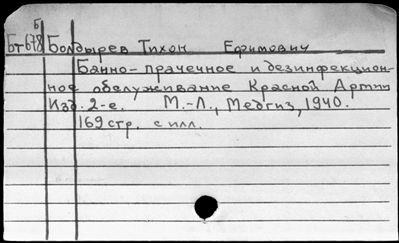 Б
Бт678 Болдырев Тихон Ефимович
Банно-прачечное и дезинфекцион-
ное обслуживание Красной Армии
Изд. 2-е. М.-Л., Медгиз, 1940.
169 стр. с илл.